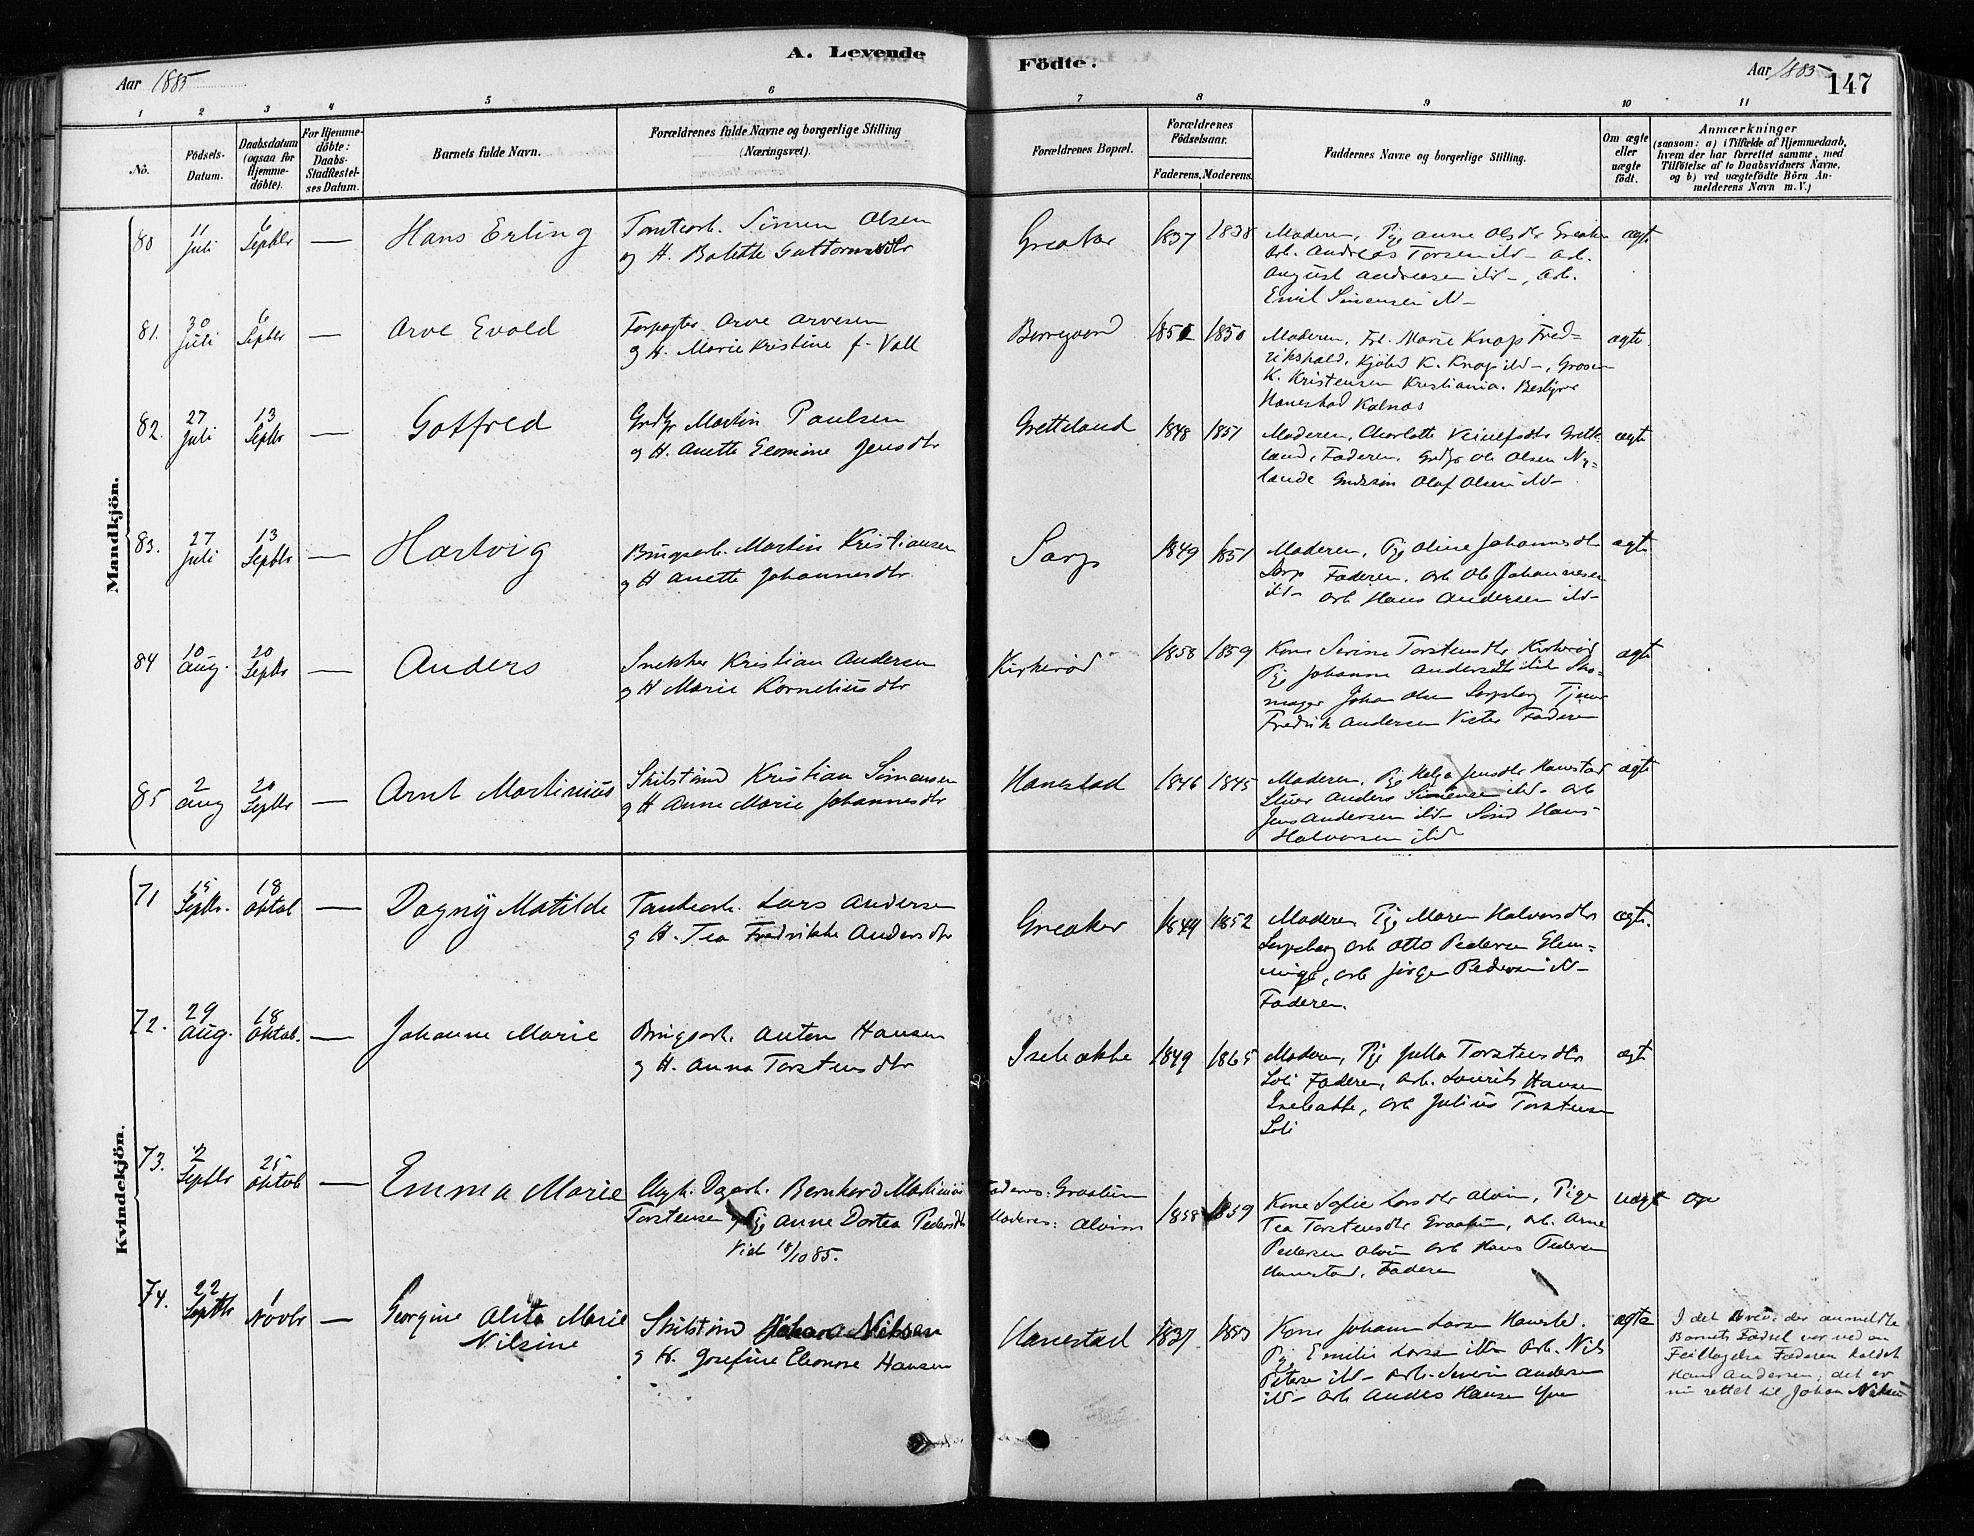 A. Levende Födte.
Aar 1885
Aar 1885
147
1 2 3 4 5 6 7 8 9 10 11
No.
Födsels-
Datum.
Daabsdatum
(ogsaa for
Hjemme-
döbte).
For Hjemme-
döbte:
Daabs-
Stadfæstel-
ses Datum.
Barnets fulde Navn.
Forældrenes fulde Navne og borgerlige Stilling
(Næringsvei).
Forældrenes Bopæl.
Forældrenes
Födselsaar.
Faderens. Moderens.
Faddernes Navne og borgerlige Stilling.
Om ægte
eller
uægte
födt.
Anmærkninger
(saasom: a) i Tilfælde af Hjemmedaab,
hvem der har forrettet samme, med
Tilföielse af to Daabsvidners Navne.
og b) ved uægtefödte Börn An-
melderens Navn m. V.)
Mandkjön.
80 11 Juli 6 Septbr — Hans Erling
Tomtearb. Simen Olsen
og H. Bolette Guttormsdtr
Greaker 1837 1838
Moderen, Pige Anne Olsdtr Greaker
Arb. Andreas Torsen ibd – Arb.
August Andreasen ibd –, Arb.
Emil Simensen ibd –
ægte
81. 30 Juli 6 Septbr — Arve Evald
Forpagter Arve Arvesen
og H. Marie Kristine f. Vall
Borregaard 1851 1850
Moderen, Frk. Marie Knap Fred-
rikshald, Kjøbmd K. Knap ibd –, Grosser
K. Kristensen Kristiania. Bestyrer
Hanestad Kalnæs
ægte
82. 27 Juli 13 Septbr — Gotfred
Grdbr Martin Paulsen
og H. Anette Elomine Jensdtr
Gretteland 1848 1851
Moderen, Charlotte Grette-
land, Faderen, Grdbr Ole Olsen Ny-
lænde Gaardsøn Olaf Olsen ibd –
ægte
83. 27 Juli 13 Septbr — Hartvig
Brugsarb. Martin Kristiansen
og H Anette Johannesdtr
Sarp 1849 1851
Moderen, Pige Oline Johannesdtr
Sarp Faderen, Arb Ole Johannesen
ibd – Arb Hans Andersen ibd –
ægte
84 10 Aug. 20 Septbr — Anders
Snekker Kristian Andersen
og H Marie Korneliusdtr
Kirkerød 1858 1859
Kone Serine Torstensdtr Kirkerød
Pige Johanne Andersdtr ibd Sko-
mager Johan Olsen Sarpsborg Tjener
Fredrik Andersen Vister Faderen
ægte
85 2 Aug 20 Septbr — Arnt Martinius
Skibstømd Kristian Simensen
og H Anne Marie Johannesdtr
Hanestad 1846 1845
Moderen, Pige Helga Jensdtr Hanestad
Stuer Anders Simensen ibd – Arb
Jens Andersen ibd – Sømd Hans
Halvorsen ibd
ægte
Kvindekjön.
71 15 Septbr. 18 Oktob — Dagny Matilde
Tomtearb. Lars Andersen
og H. Tea Fredrikke Andersdtr
Greaker 1849 1852
Moderen Pige Maren Halvorsdtr
Sarpsborg Arb Otto Pedersen Glem-
minge, Arb Jørgen Pedersen ibd –
Faderen.
ægte.
72. 29 Aug. 18 Oktob. — Johanne Marie
Brugsarb. Anton Hansen
og H. Anna Torstensdtr
Isebakke 1849 1865
Moderen, Pige Julla Torstensdtr
Loli Faderen, Arb. Laurits Hansen
Isebakke, Arb Julius Torstensen
Loli
ægte
73. 2 Septbr 25 Oktob — Emma Marie
Ungk. Dgarb. Bernhard Martinius
Torstensen og Pige Anne Dortea Pedersdtr
Viet 18/10 85.
Faderens: Graatun
Moderens: Alvim 1858 1859
Kone Sofie Larsdtr Alvim, Pige
Tea Torstensdtr Graatun, Arb. Arne
Pedersen Alvim Arb Hans Pedersen
Hanestad, Faderen
uægte
74. 22 Septbr 1 Novbr — Georgine Alita Marie
Nilsine
Skibstømd Johan Nilsen
og H. Josefine Eleonore Hansen
Hanestad 1837 1853
Kone Johanne Larsen Hanestad.
Pige Emilie Larsen ibd – Arb. Nils
Petersen ibd – Arb. Severin Andersen
ibd – Arb Anders Hansen
ægte
I det Brev, der anmeldte
Barnets Fødsel var ved en
Feiltagelse Faderen kaldet
Hans Andersen; det er
nu rettet til Johan Nilsen